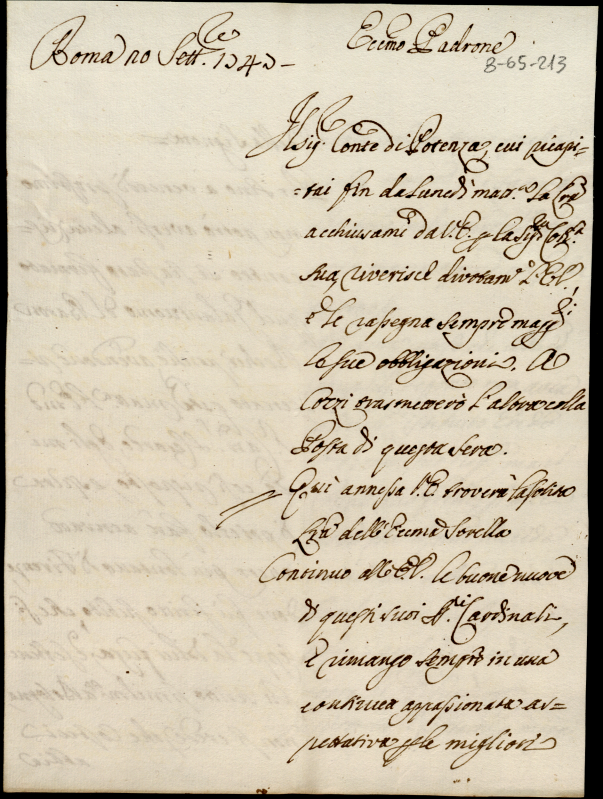 Roma 20 Sett.re 1747 -
Eccmo Padrone
8-65-213
Il Sig.r Conte di Potenza, cui ricapi-
tai fin da Lunedì mat.a la Lra
acchiusami da V.E. per la Sig.ra
sua, riverisce divotam.e l'E.V.
e le rassegna sempre magg.ri
le sue obbligazioni. A
Cozzi trasmetterò l'altra colla
Posta di questa sera.
Qui annessa V.E. troverà la solita
Lra dell'Eccma Sorella
Continuo all'E.V. le buone nuove
di questi suoi SS.ri Cardinali,
E rimango sempre in una
continua appassionata as-
pettativa per le migliori